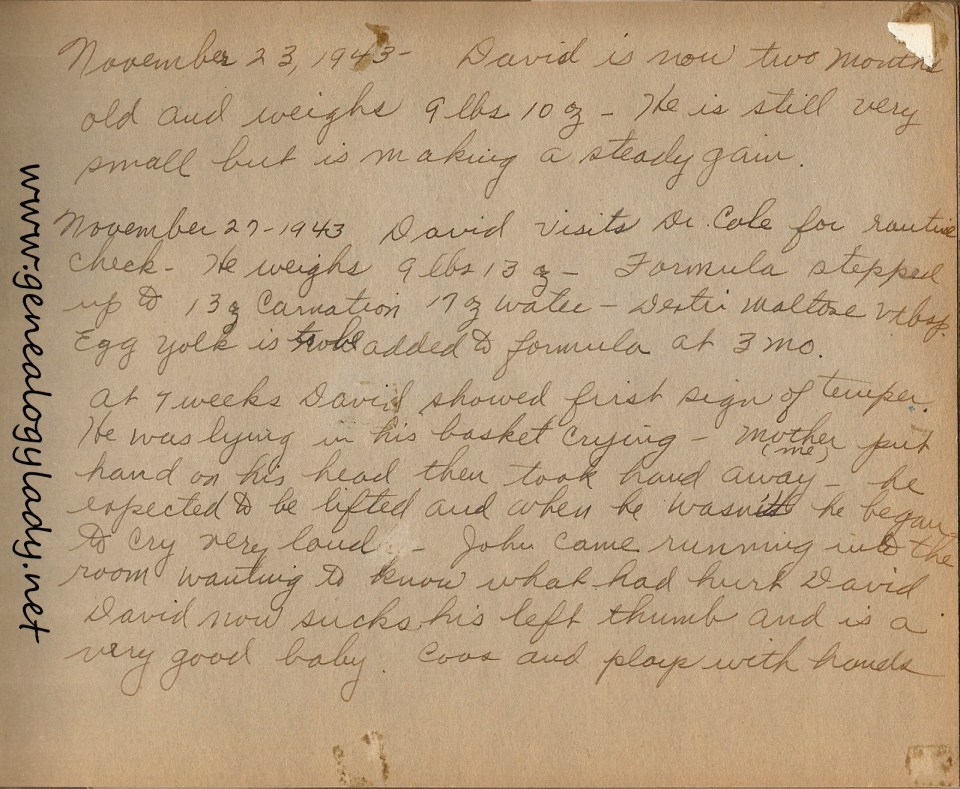 November 23, 1943- David is now two months
old and weighs 9 lbs 10 oz - He is still very
small but is making a steady gain.
November 27-1943 David visits Dr. Cole for routine
check - He weighs 9 lbs 13 oz - Formula stepped
up to 13 oz Carnation 17 oz water - Dextri Maltose V tbsp.
Egg yolk is to be added to formula at 3 mo.
At 7 weeks David showed frist sign of temper.
He was lying in his basket crying - Mother put
(me)
hand on his head then took hand away - he
expected to be lifted and when he wasn't he began
to cry very loud - John came running into the
room wanting to know what had hurt David
David now sucks his left thumb and is a
very good baby. Coos and plays with hands
www.genealogylady.net